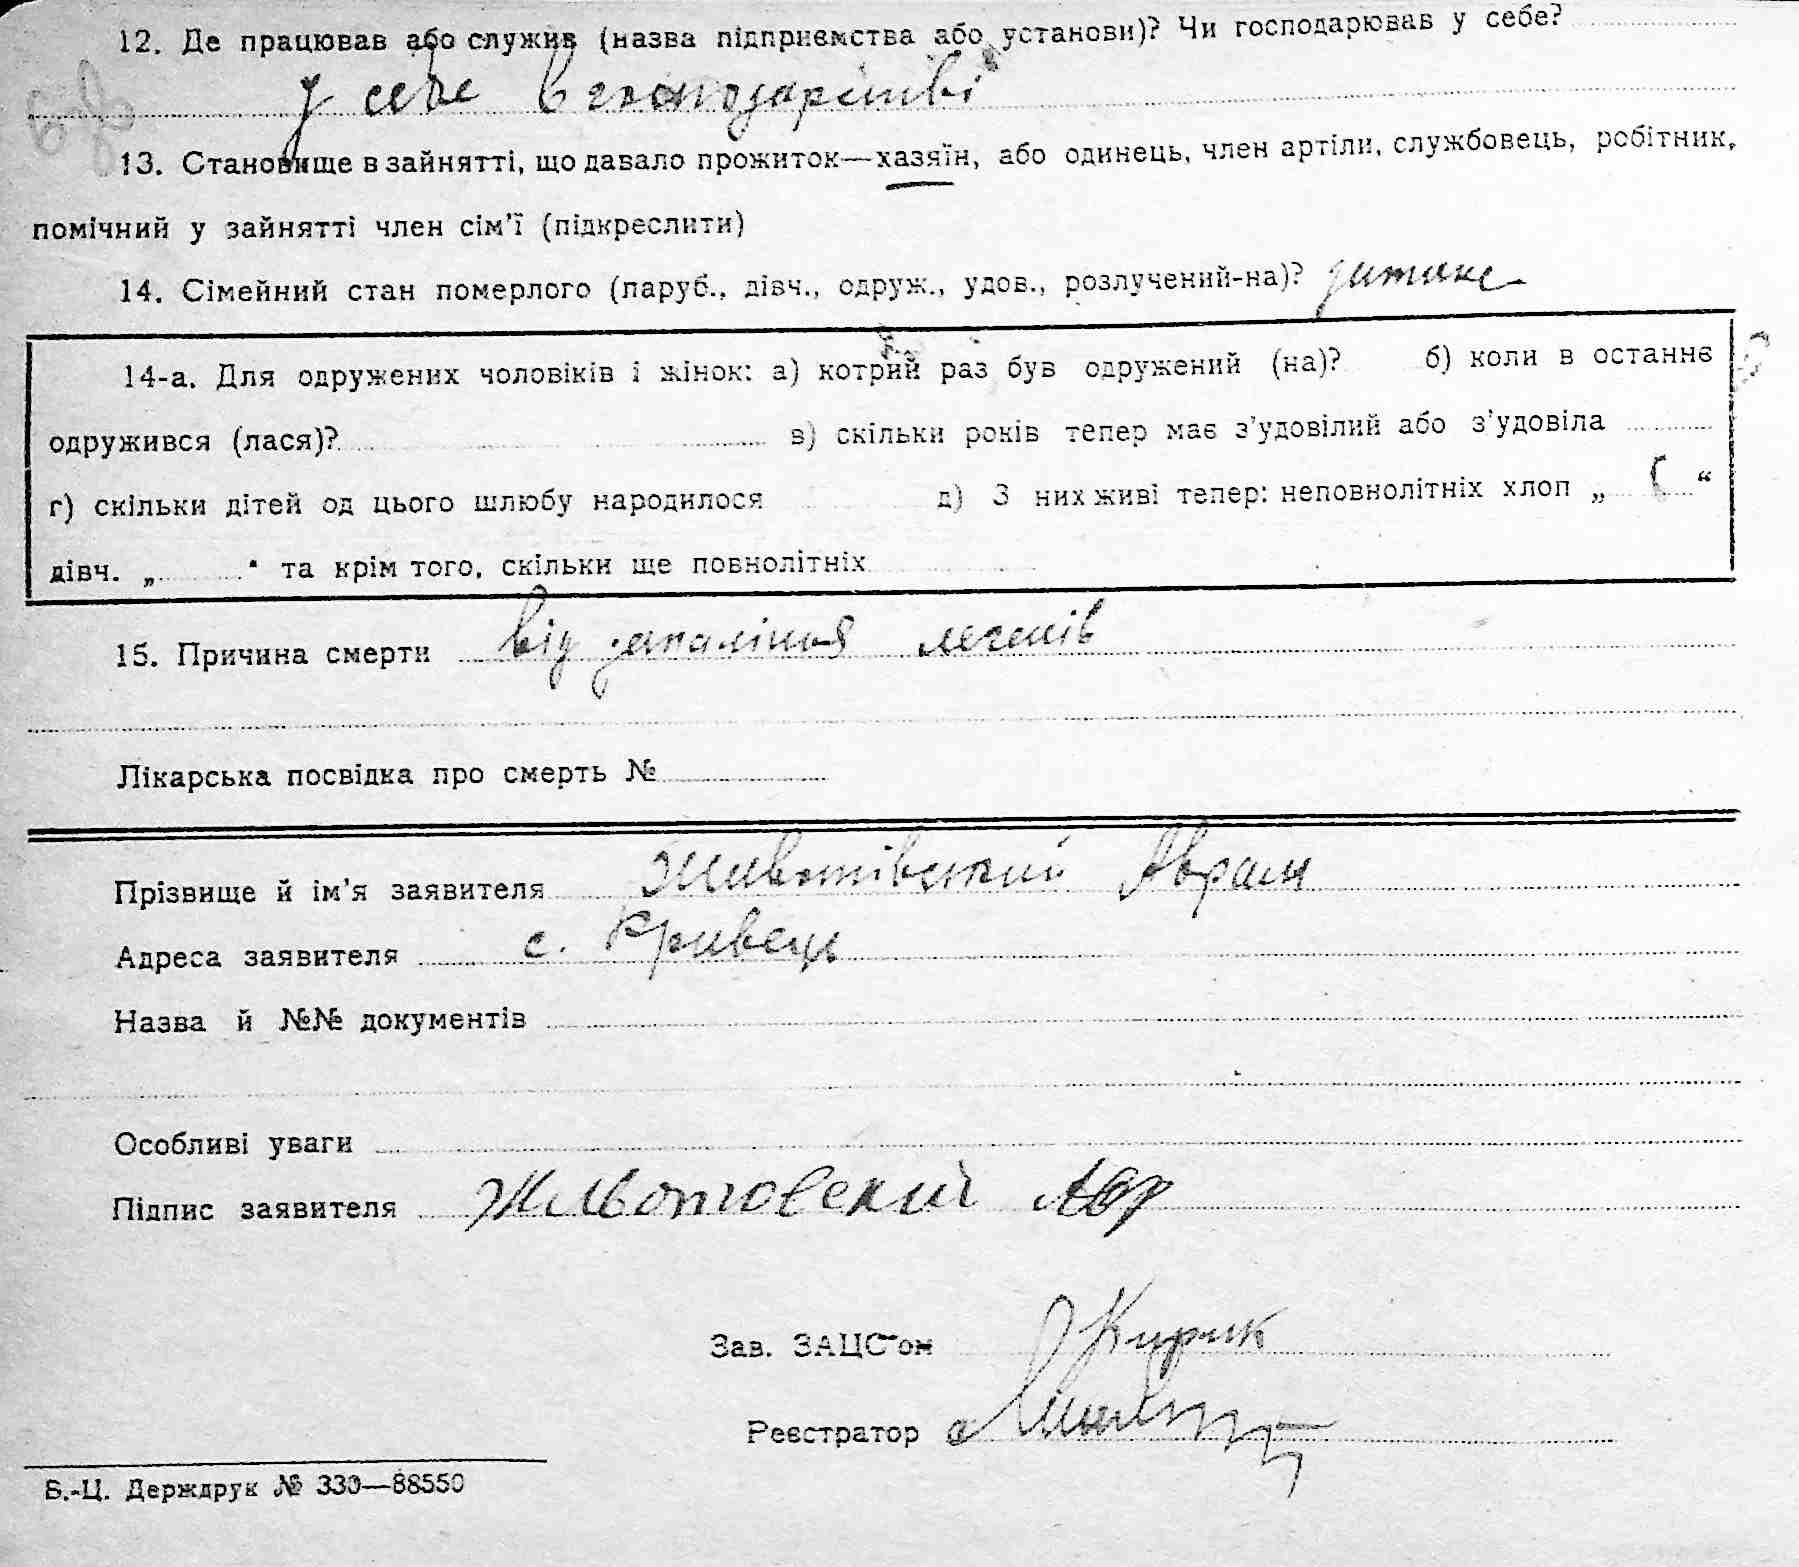 12. Де працював або служив (назва підприємства або установи)? Чи господарював у себе?
у себе в господарстві
13. Становище в зайнятті, що давало прожиток—хазяїн, або одинець, член артіли, службовець, робітник,
помічний у зайнятті член сім'ї (підкреслити)
14. Сімейний стан померлого (паруб., дівч., одруж., удов., розлучений-на)? дитина
14-а. Для одружених чоловіків і жінок: а) котрий раз був одружений (на)? б) коли в останнє
одружився (лася)? в) скільки років тепер має з'удовілий або з'удовіла
г) скільки дітей од цього шлюбу народилося д) З них живі тепер: неповнолітніх хлоп „ “
дівч. „ “ та крім того, скільки ще повнолітніх
15. Причина смерти від запаління легенів
Лікарська посвідка про смерть №
Прізвище й ім'я заявителя Животівський Аврам
Адреса заявителя с. Кривець
Назва й №№ документів
Особливі уваги
Підпис заявителя Животовский Авр
Зав. ЗАЦС'ом Кирик
Реєстратор
Б.-Ц. Держдрук № 330—88550